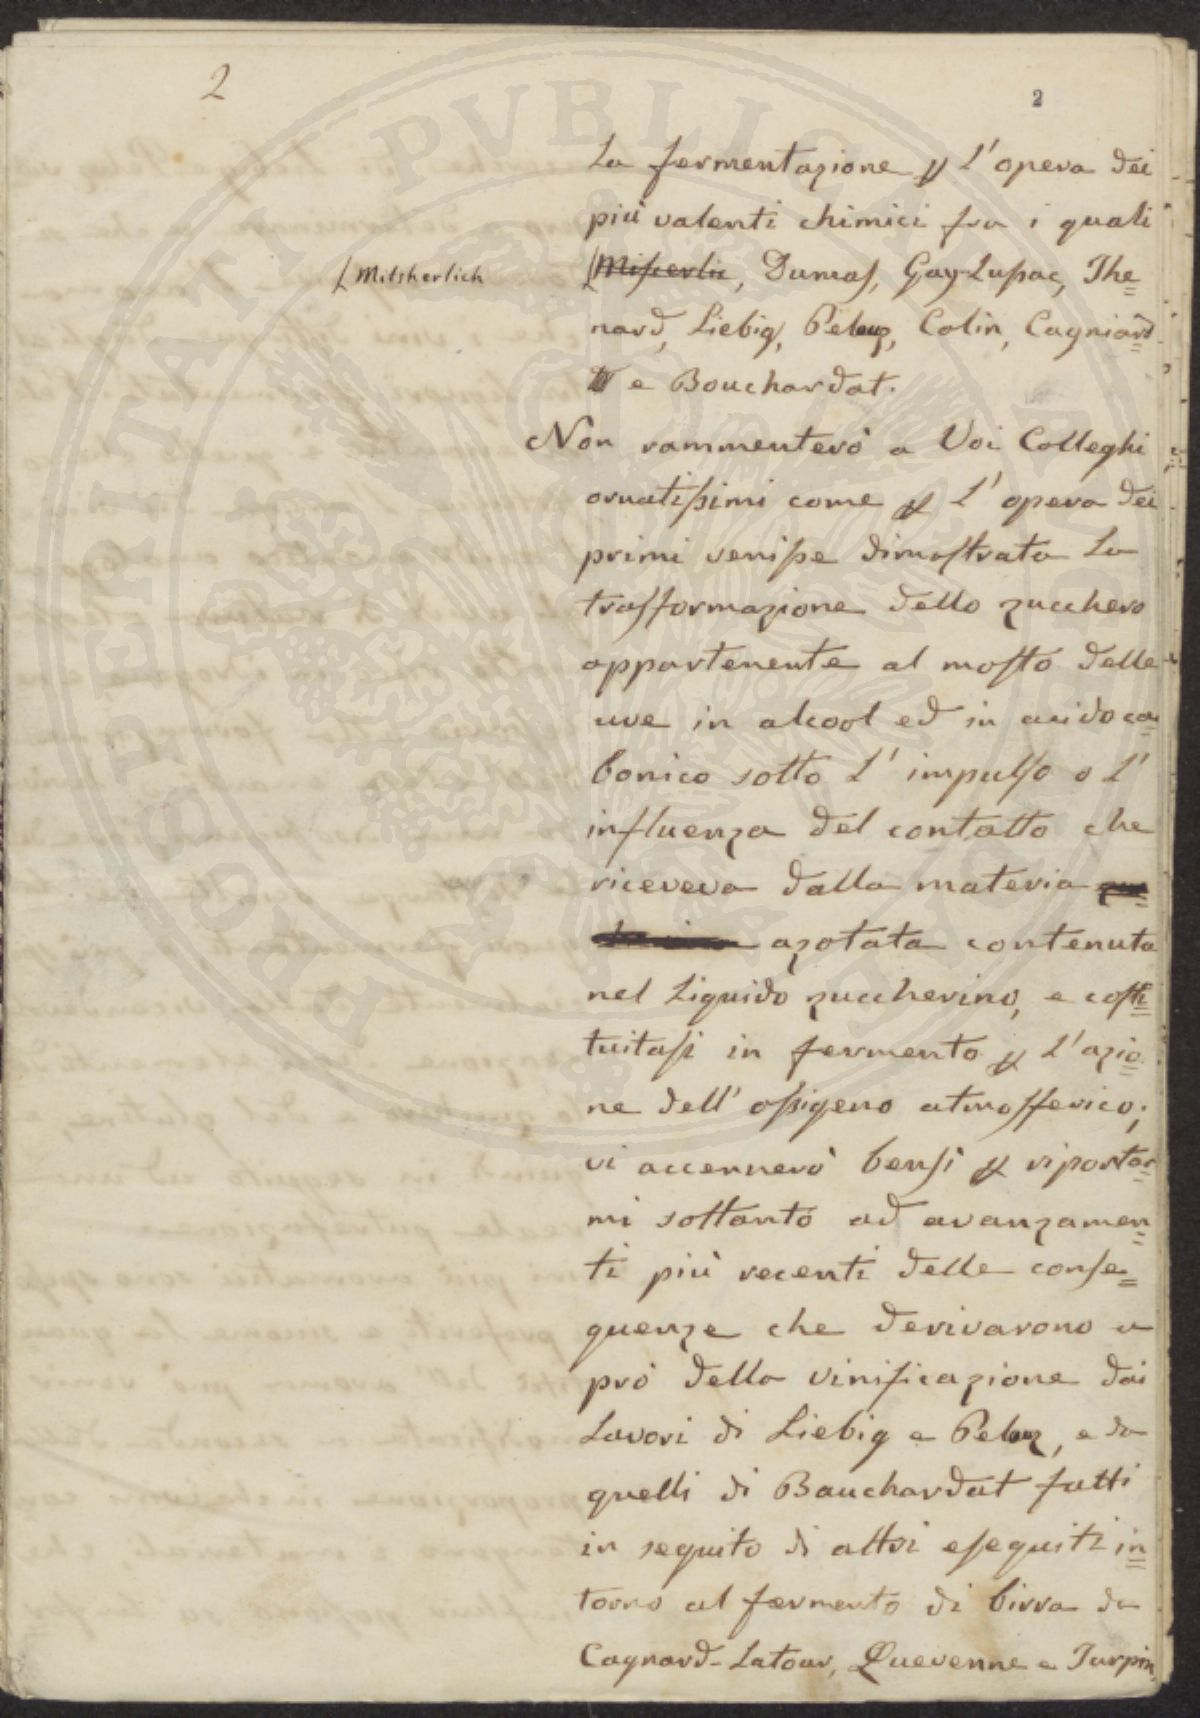 2
2
La fermentazione p l'opera dei
più valenti chimici fra i quali
Mitsherlich
Miscerlic, Dumas, Gay-Lussac, The=
nard, Liebig, Pelouz, Colin, Cagniard
e Bouchardat.
Non rammenterò a Voi Colleghi
ornatissimi come p l'opera dei
primi venisse dimostrata la
trasformazione dello zucchero
appartenente al mosto delle
uve in alcool ed in acido car
bonico sotto l'impulso o l'
influenza del contatto che
riceveva dalla materia
azotata contenuta
nel liquido zuccherino, e costi=
tuitasi in fermento p l'azio=
ne dell'ossigeno atmosferico;
vi accennerò bensì p riportar=
mi soltanto ad avanzamen=
ti più recenti delle conse=
guenze che derivarono a
prò della vinificazione dai
lavori di Liebig e Pelouz, e da
quelli di Bauchardat fatti
in seguito di altri eseguiti in=
torno al fermento di birra da
Cagnard-Latour, Quevenne e Turpin
PROSPERITATI PVBLICAE AVGENDAE